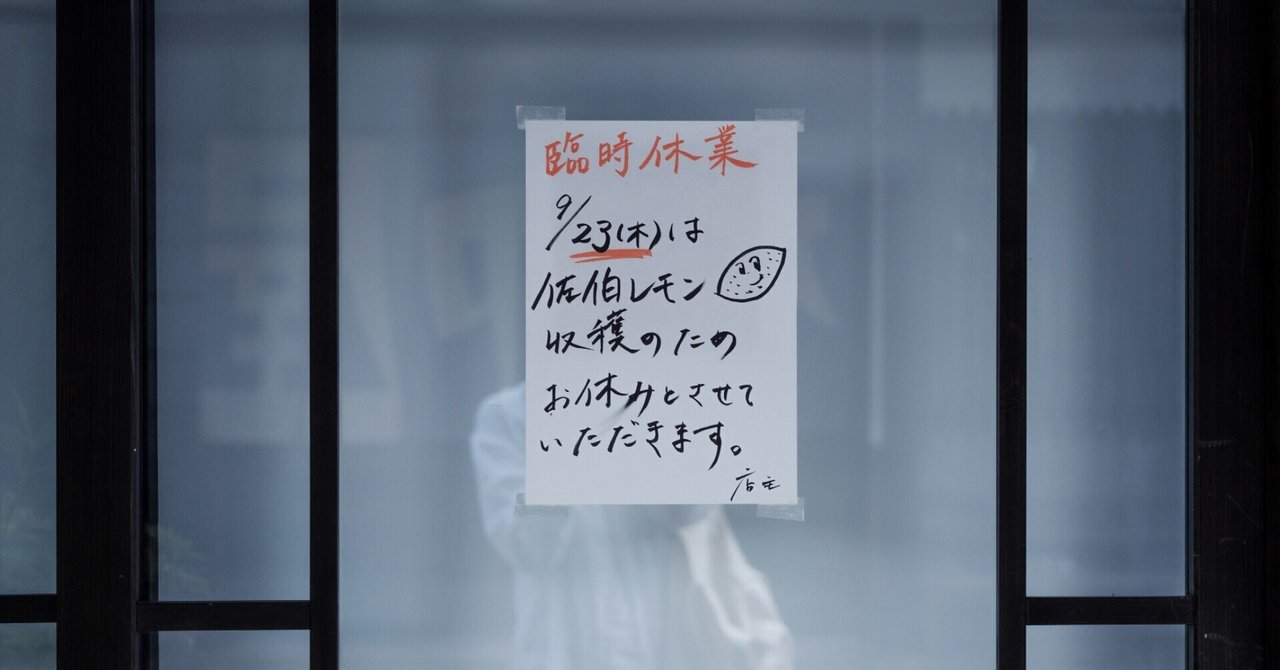 臨時休業
9/23(木)は
佐伯レモン
収穫のため
お休みとさせて
いただきます。
店主